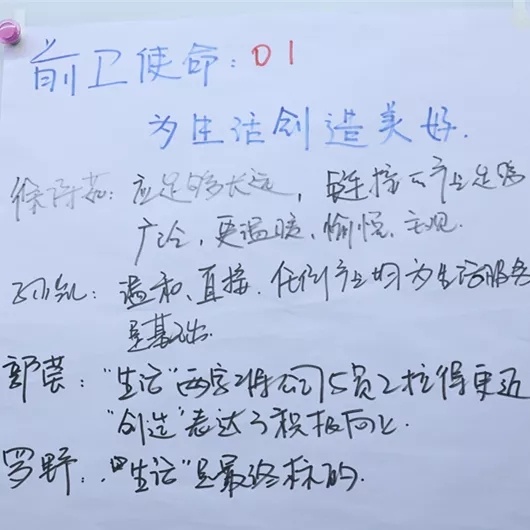 前卫使命：01
为生活创造美好.
徐诗茹：应足够长远，链接云产业足够
广泛，更温暖、愉悦、主观.
凯：温和、直接.任何产业均为生活服务
是基础.
郭芸："生活"两字将公司与员工拉得更近
"创造"表达了积极向上.
罗野："生活"是最终标的.